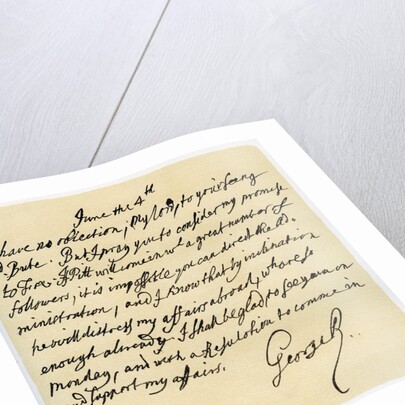 June the 4th
have no objection, My lord, to your seeing
d. Bute. But I pray you to consider my promise
to Fox. If Pitt will come in with a great number of
followers, it is impossible you can direct the ad.
ministration, and I know that by inclination
he will distress my affairs abroad, which are so
enough already. I shall be glad to see you on
monday, and with a Resolution to comme in
and support my affairs.
George R.